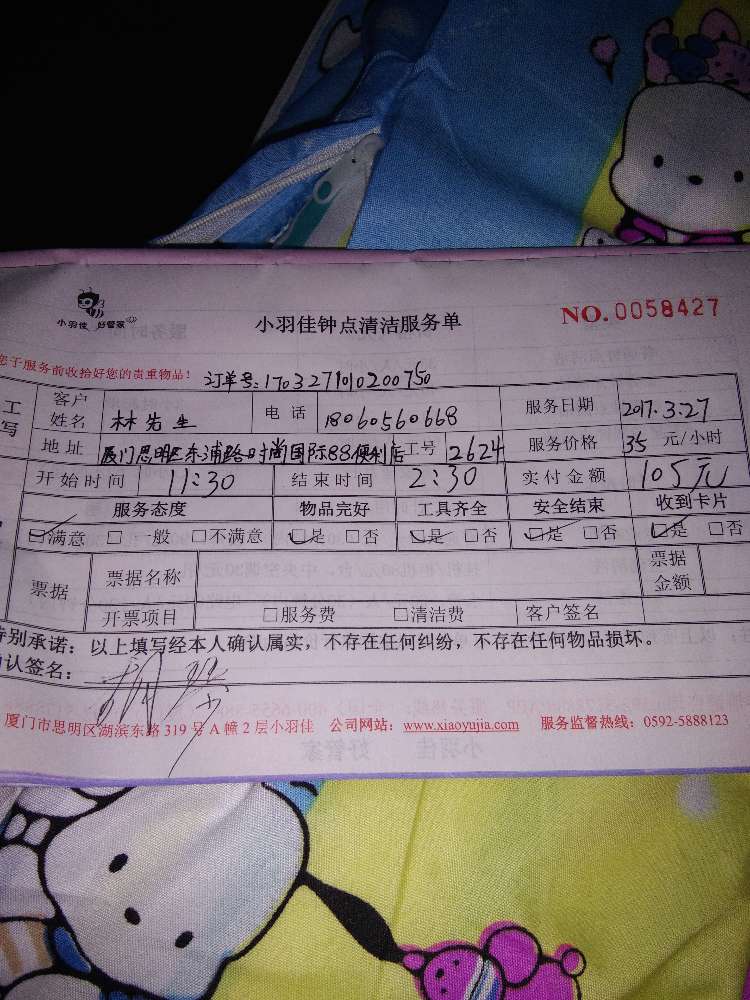 小羽佳 好管家
小羽佳钟点清洁服务单
NO.0058427
您于服务前收拾好您的贵重物品!
订单号:1703271010200750
工
写
客户
姓名
林先生
电话
18060560668
服务日期
2017.3.27
地址
厦门思明区东浦路时尚国际88便利店
工号
2624
服务价格
35 元/小时
开始时间
11:30
结束时间
2:30
实付金额
105元
服务态度
物品完好
工具齐全
安全结束
收到卡片
☑满意 □一般 □不满意
☑是 □否
☑是 □否
☑是 □否
☑是 □否
票据
票据名称
票据
金额
开票项目
□服务费
□清洁费
客户签名
特别承诺:以上填写经本人确认属实,不存在任何纠纷,不存在任何物品损坏。
确认签名:
厦门市思明区湖滨东路 319 号 A 幢 2 层小羽佳 公司网站:www.xiaoyujia.com 服务监督热线:0592-5888123